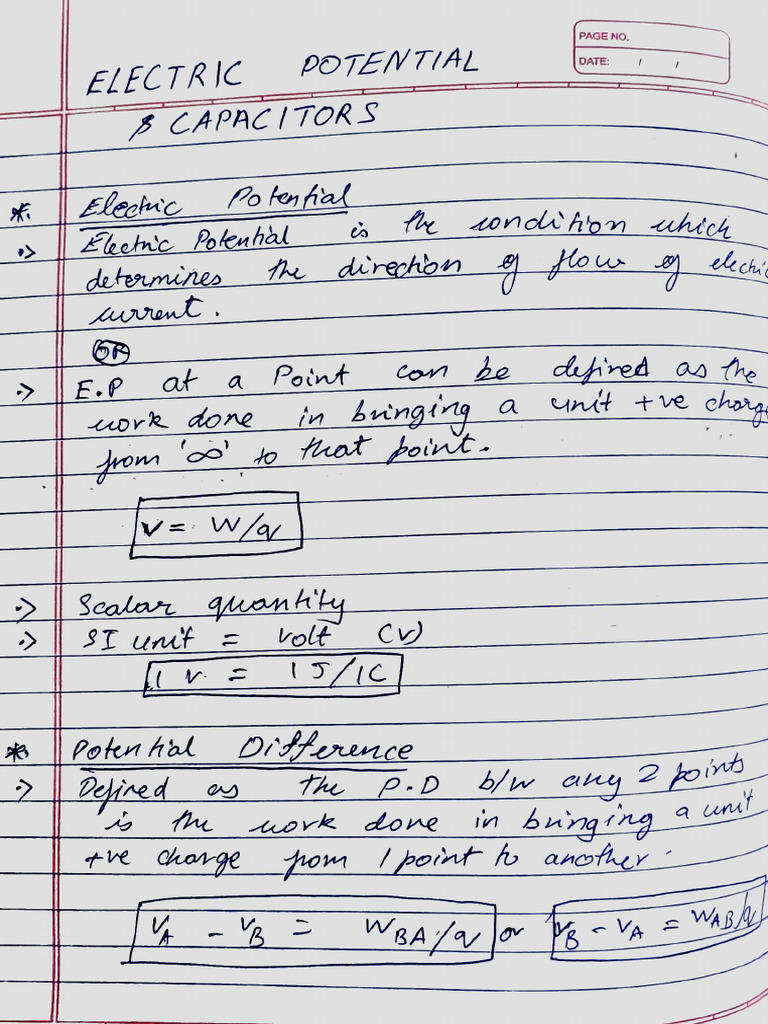 PAGE NO.
DATE: / /
ELECTRIC POTENTIAL
& CAPACITORS
*. Electric Potential
.> Electric Potential is the condition which
determines the direction of flow of electric
current.
OR
.> E.P at a Point can be defined as the
work done in bringing a unit +ve charge
from '∞' to that point.
V = W/q
.> Scalar quantity
.> SI unit = volt (v)
1 v. = 1J/1C
*. Potential Difference
.> Defined as the P.D b/w any 2 points
is the work done in bringing a unit
+ve charge from 1 point to another.
V_A - V_B = W_BA/q or V_B - V_A = W_AB/q